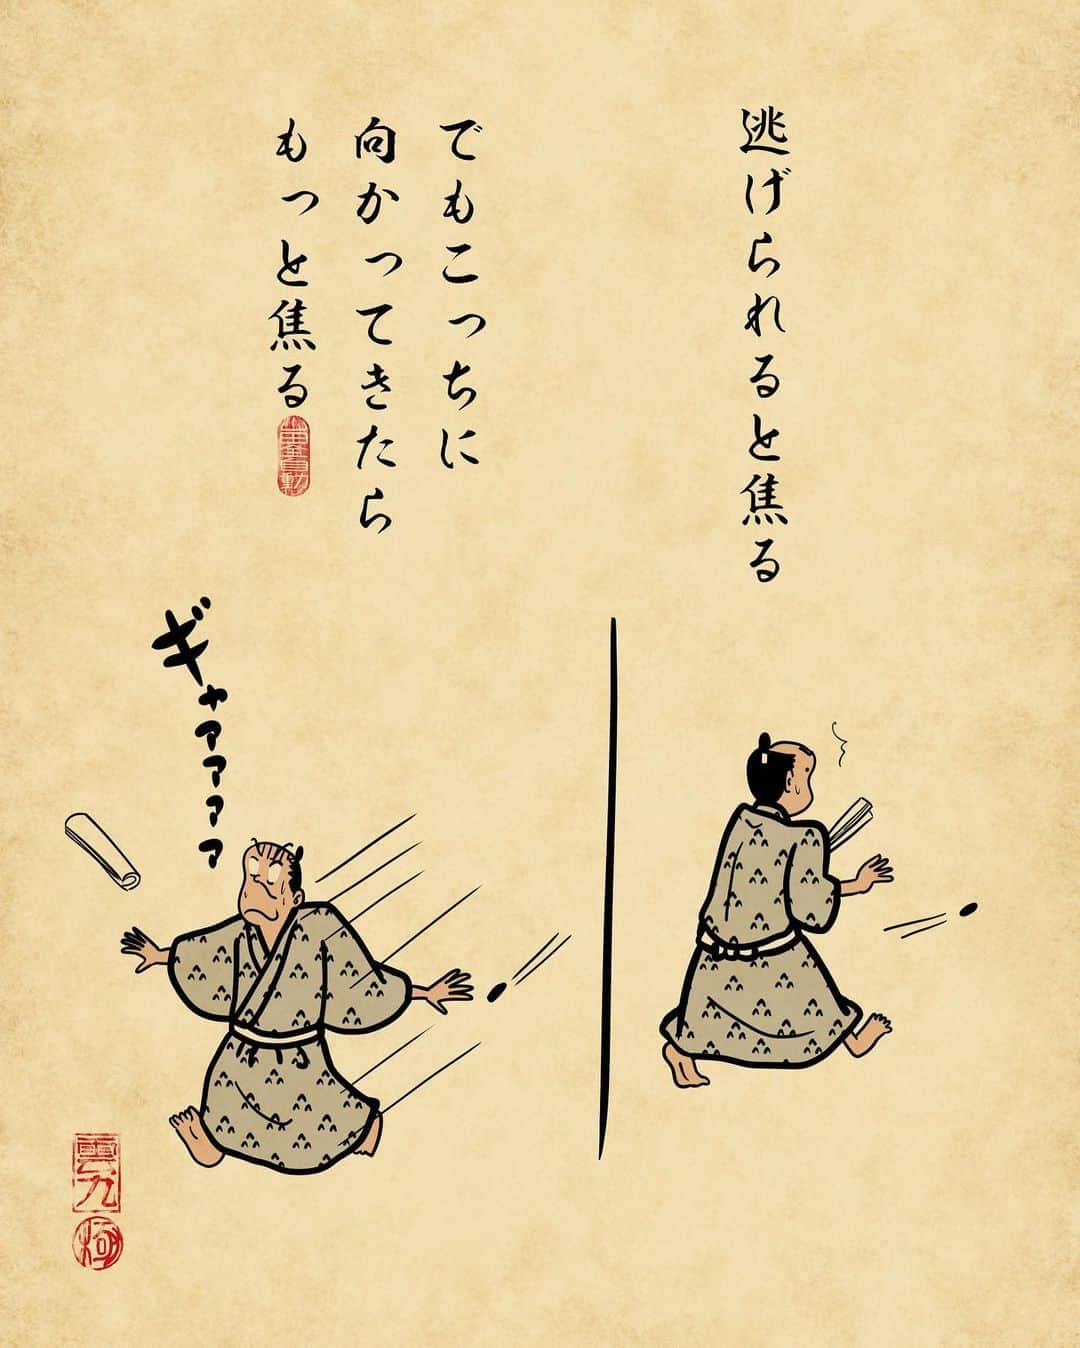 逃げられると焦る
でもこっちに
向かってきたら
もっと焦る
ギャァァァァ